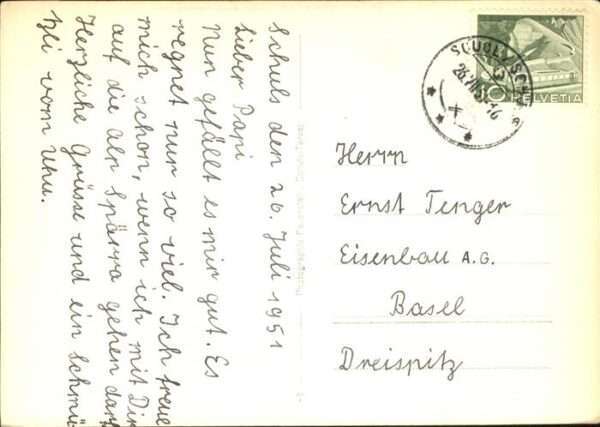 Schuls den 26. Juli 1951
Lieber Papi
Nun gefällt es mir gut. Es
regnet nur so viel. Ich freue
mich schon, wenn ich mit Dir
auf die Alp Spärra gehen darf.
Herzliche Grüsse und ein Schmü
tzli vom Uhu.
HELVETIA
Herrn
Ernst Tenger
Eisenbau A.G.
Basel
Dreispitz